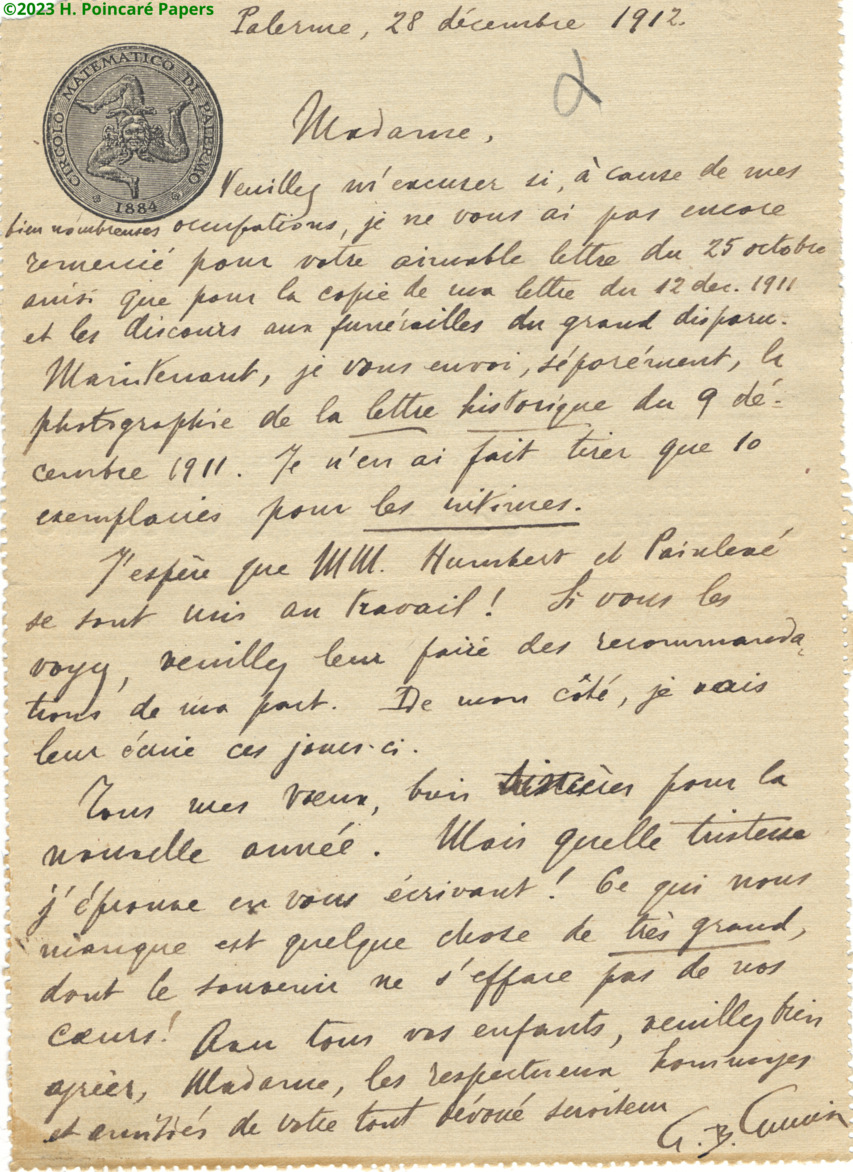 ©2023 H. Poincaré Papers
Palerme, 28 décembre 1912.
CIRCOLO MATEMATICO DI PALERMO
1884
Madame,
Veuillez m'excuser si, à cause de mes
bien nombreuses occupations, je ne vous ai pas encore
remercié pour votre aimable lettre du 25 octobre
ainsi que pour la copie de ma lettre du 12 dec. 1911
et les discours aux funérailles du grand disparu.
Maintenant, je vous envoi, séparément, la
photographie de la lettre historique du 9 dé-
cembre 1911. Je n'en ai fait tirer que 10
exemplaires pour les intimes.
J'espère que MM. Humbert et Painlevé
se sont mis au travail! Si vous les
voyez, veuillez leur faire des recommanda-
tions de ma part. De mon côté, je vais
leur écrire ces jours-ci.
Tous mes vœux, bien pour la
nouvelle année. Mais quelle tristesse
j'éprouve en vous écrivant! Ce qui nous
manque est quelque chose de très grand,
dont le souvenir ne s'efface pas de nos
cœurs! Avec tous vos enfants, veuillez bien
agréer, Madame, les respectueux hommages
et amitiés de votre tout dévoué serviteur
G. B. Guccia